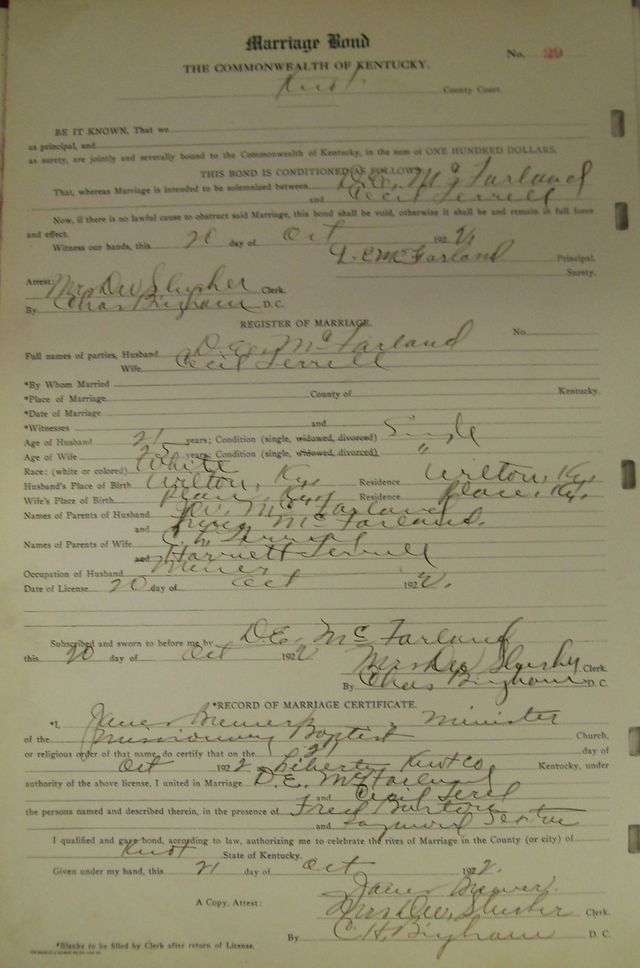 Marriage Bond
No. 29
THE COMMONWEALTH OF KENTUCKY.
Knot County Court.
BE IT KNOWN, That we
as principal, and
as surety, are jointly and severally bound to the Commonwealth of Kentucky, in the sum of ONE HUNDRED DOLLARS.
THIS BOND IS CONDITIONED AS FOLLOWS:
That, whereas Marriage is intended to be solemnized between D.E. McFarland
and Cecil Terrell
Now, if there is no lawful cause to obstruct said Marriage, this bond shall be void, otherwise it shall be and remain in full force
and effect.
Witness our hands, this 20 day of Oct 1922
D. E McFarland Principal.
Surety.
Attest: Mrs Dew Slusher Clerk.
By Chas Bingham D. C.
REGISTER OF MARRIAGE.
No.
Full names of parties, Husband D.E. McFarland
Wife Cecil Terrell
*By Whom Married
*Place of Marriage County of Kentucky.
*Date of Marriage
*Witnesses and
Age of Husband 21 years; Condition (single, widowed, divorced) Single
Age of Wife 25 years; Condition (single, widowed, divorced) "
Race: (white or colored) White
Husband's Place of Birth Wilton, Ky. Residence Wilton, Ky.
Wife's Place of Birth Ky Residence Ky.
Names of Parents of Husband McFarland
and McFarland.
Names of Parents of Wife Terrell
and Harriett Terrell
Occupation of Husband Miner
Date of License 20 day of Oct 1922.
Subscribed and sworn to before me by D.E. McFarland
this 20 day of Oct 1922
Mrs Dew Slusher Clerk.
By Chas Bingham D. C.
*RECORD OF MARRIAGE CERTIFICATE.
*I, Brewer, Minister
of the Missionary Baptist Church,
or religious order of that name, do certify that on the 21 day of
Oct 1922 Liberty Knot Co. Kentucky, under
authority of the above license, I united in Marriage D.E. McFarland
and Cecil
the persons named and described therein, in the presence of Fred
and Raymond
I qualified and gave bond, according to law, authorizing me to celebrate the rites of Marriage in the County (or city) of
Knot State of Kentucky.
Given under my hand, this 21 day of Oct 1922.
Brewer.
A Copy, Attest: Mrs Dew Slusher Clerk.
By C. H. Bingham D. C.
*Blanks to be filled by Clerk after return of License.